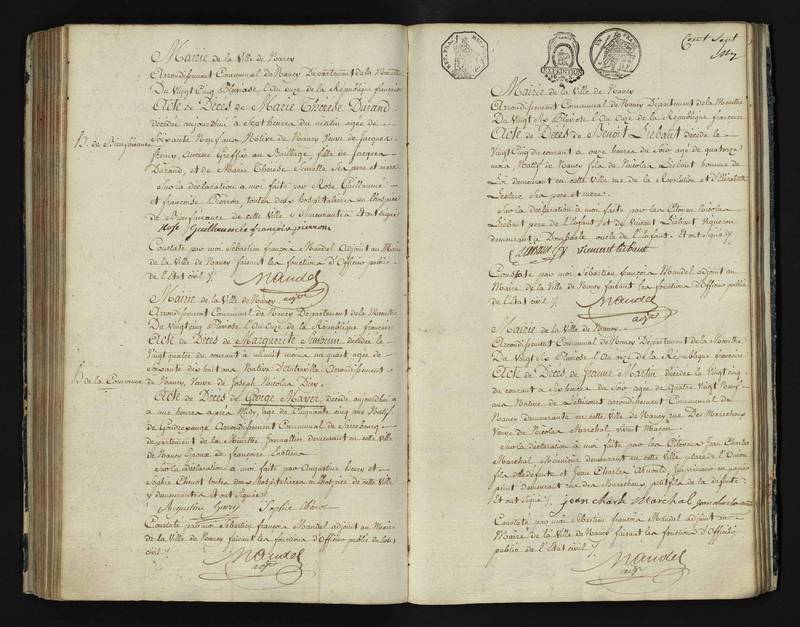 Mairie de la Ville de Nancy
Arrondissement Communal de Nancy Département de la Meurthe
Du Vingt Cinq Pluviose l'An onze de la République francoise
Acte de Décès de Marie Thérèse Durand
décédée aujourd'hui à Sept heures du matin agée de
H. de Bienfaisance
Soixante Neuf ans Native de Nancy Veuve de Jacques
Greffier au Bailliage, fille de Jacques
Durand, et de Marie Thérèse ses pere et mere
Sur la déclaration à moi faite par Rose Guillaume
et françoise Pierron, toutes deux hospitalieres en l'hospice
de Bienfaisance de cette Ville y demeurantes Et ont signé
Rose Guillaume françoise pierron
Constaté par moi Sébastien françois Mandel Adjoint au Maire
de la Ville de Nancy faisant les fonctions d'Officier public
de l'Etat civil
Mandel
adjt
Mairie de la Ville de Nancy
Arrondissement Communal de Nancy Département de la Meurthe
Du Vingt cinq Pluviose l'An Onze de la République francoise
Acte de Décès de Marguerite Simonin décédée le
Vingt quatre du courant à minuit moins un quart, agée de
soixante dix huit ans Native d'Autreville Arrondissement
H de la Commune
de Nancy, Veuve de Joseph Nicolas
Acte de Décès de George Mayer, décédé aujourd'hui à
une heure après Midy, agé de Cinquante cinq ans Natif
de Gondrexange Arrondissement Communal de Sarrebourg
département de la Meurthe Journallier demeurant en cette ville
de Nancy Epoux de francoise
Sur la déclaration à moi faite par Augustine henry et
Sophie toutes deux hospitalieres en l'hospice de cette Ville
y demeurantes Et ont signé
Augustine henry Sophie
Constaté par moi Sébastien françois Mandel adjoint au Maire
de la Ville de Nancy faisant les fonctions d'Officier public de l'état
civil
Mandel
adjt
Cent Sept
Mairie de la Ville de Nancy
Arrondissement Communal de Nancy Département de la Meurthe
Du Vingt Six Pluviose l'An Onze de la République francoise
Acte de Décès de Benoit Liebaut décédé le
Vingt Cinq du courant à onze heures du Soir agé de quatorze
mois, Natif de Nancy fils de Nicolas Liebaut homme de
Loi demeurant en cette Ville rue de la Revolution et d'Elisabeth
Leclerc ses pere et mere.
Sur la déclaration à moi faite par les Citoyens Nicolas
Liebaut pere de l'Enfant et de Vincent Liebaut Vigneron
demeurant à Dombasle oncle de l'Enfant. Et ont signé
Liebaut vincent liebaut
Constaté par moi Sébastien françois Mandel adjoint au
Maire de la Ville de Nancy faisant les fonctions d'Officier public
de l'Etat civil
Mandel
adjt
Mairie de la Ville de Nancy
Arrondissement Communal de Nancy Département de la Meurthe
Du Vingt Six Pluviose l'An Onze de la République francoise
Acte de Décès de Jeanne Martin décédée le Vingt cinq
du courant à Six heures du Soir agée de Quatre Vingt Neuf
ans Native de Letricourt arrondissement Communal de
Nancy demeurante en cette Ville de Nancy rue Des Marechaux
Veuve de Nicolas Marechal vivant Maçon
Sur la déclaration à moi faite par les Citoyens Jean Charles
Marchal, Menuisier demeurant en cette Ville place de l'Union
fils de la défunte et Jean Charles Arnould, Imprimeur en papiers
peint demeurant rue des Marechaux petit fils de la défunte.
Et ont signé jean charle Marchal
Constaté par moi Sébastien françois Mandel adjoint au
Maire de la Ville de Nancy faisant les fonctions d'Officier
public de l'Etat civil
Mandel
adjt